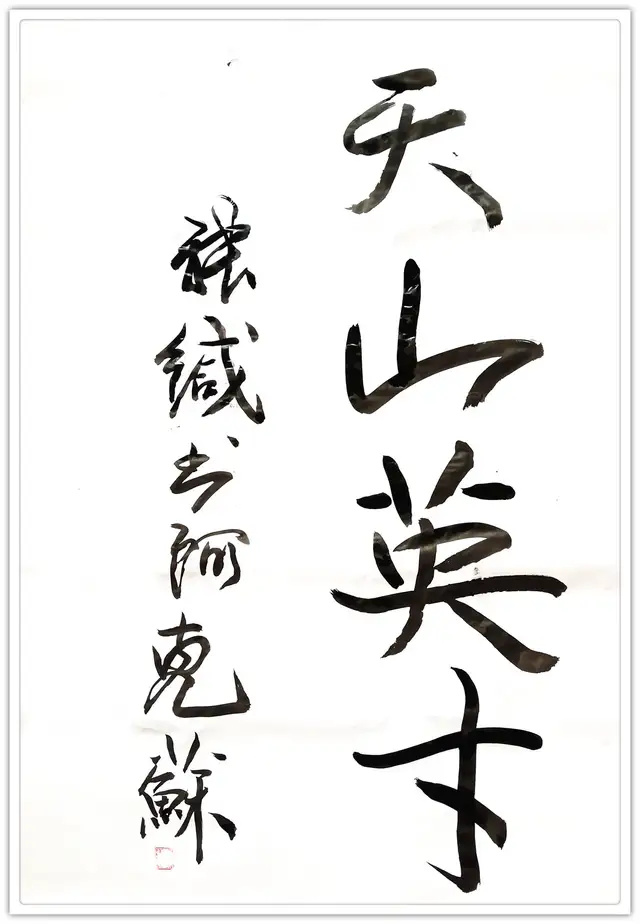 天山英才
张缄书阿克蘇